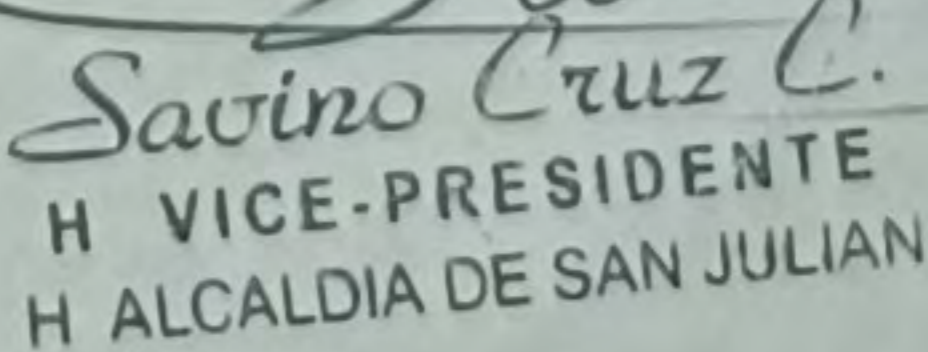 Savino Cruz C.
H VICE-PRESIDENTE
H ALCALDIA DE SAN JULIAN